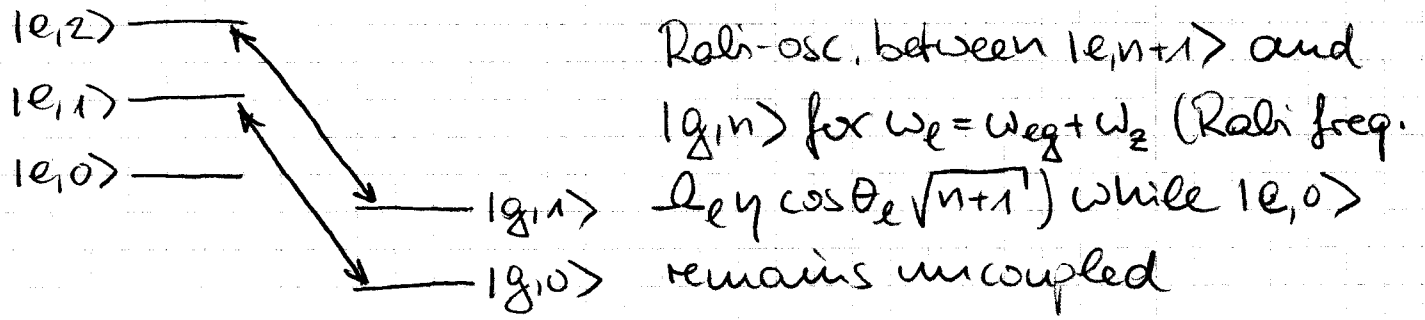 |e,2>
|e,1>
|e,0>
|g,1>
|g,0>
Rabi-osc. between |e,n+1> and
|g,n> for ωₑ = ω_eg + ω_z (Rabi freq.
Ωₑ η cosθₑ √(n+1)) while |e,0>
remains uncoupled